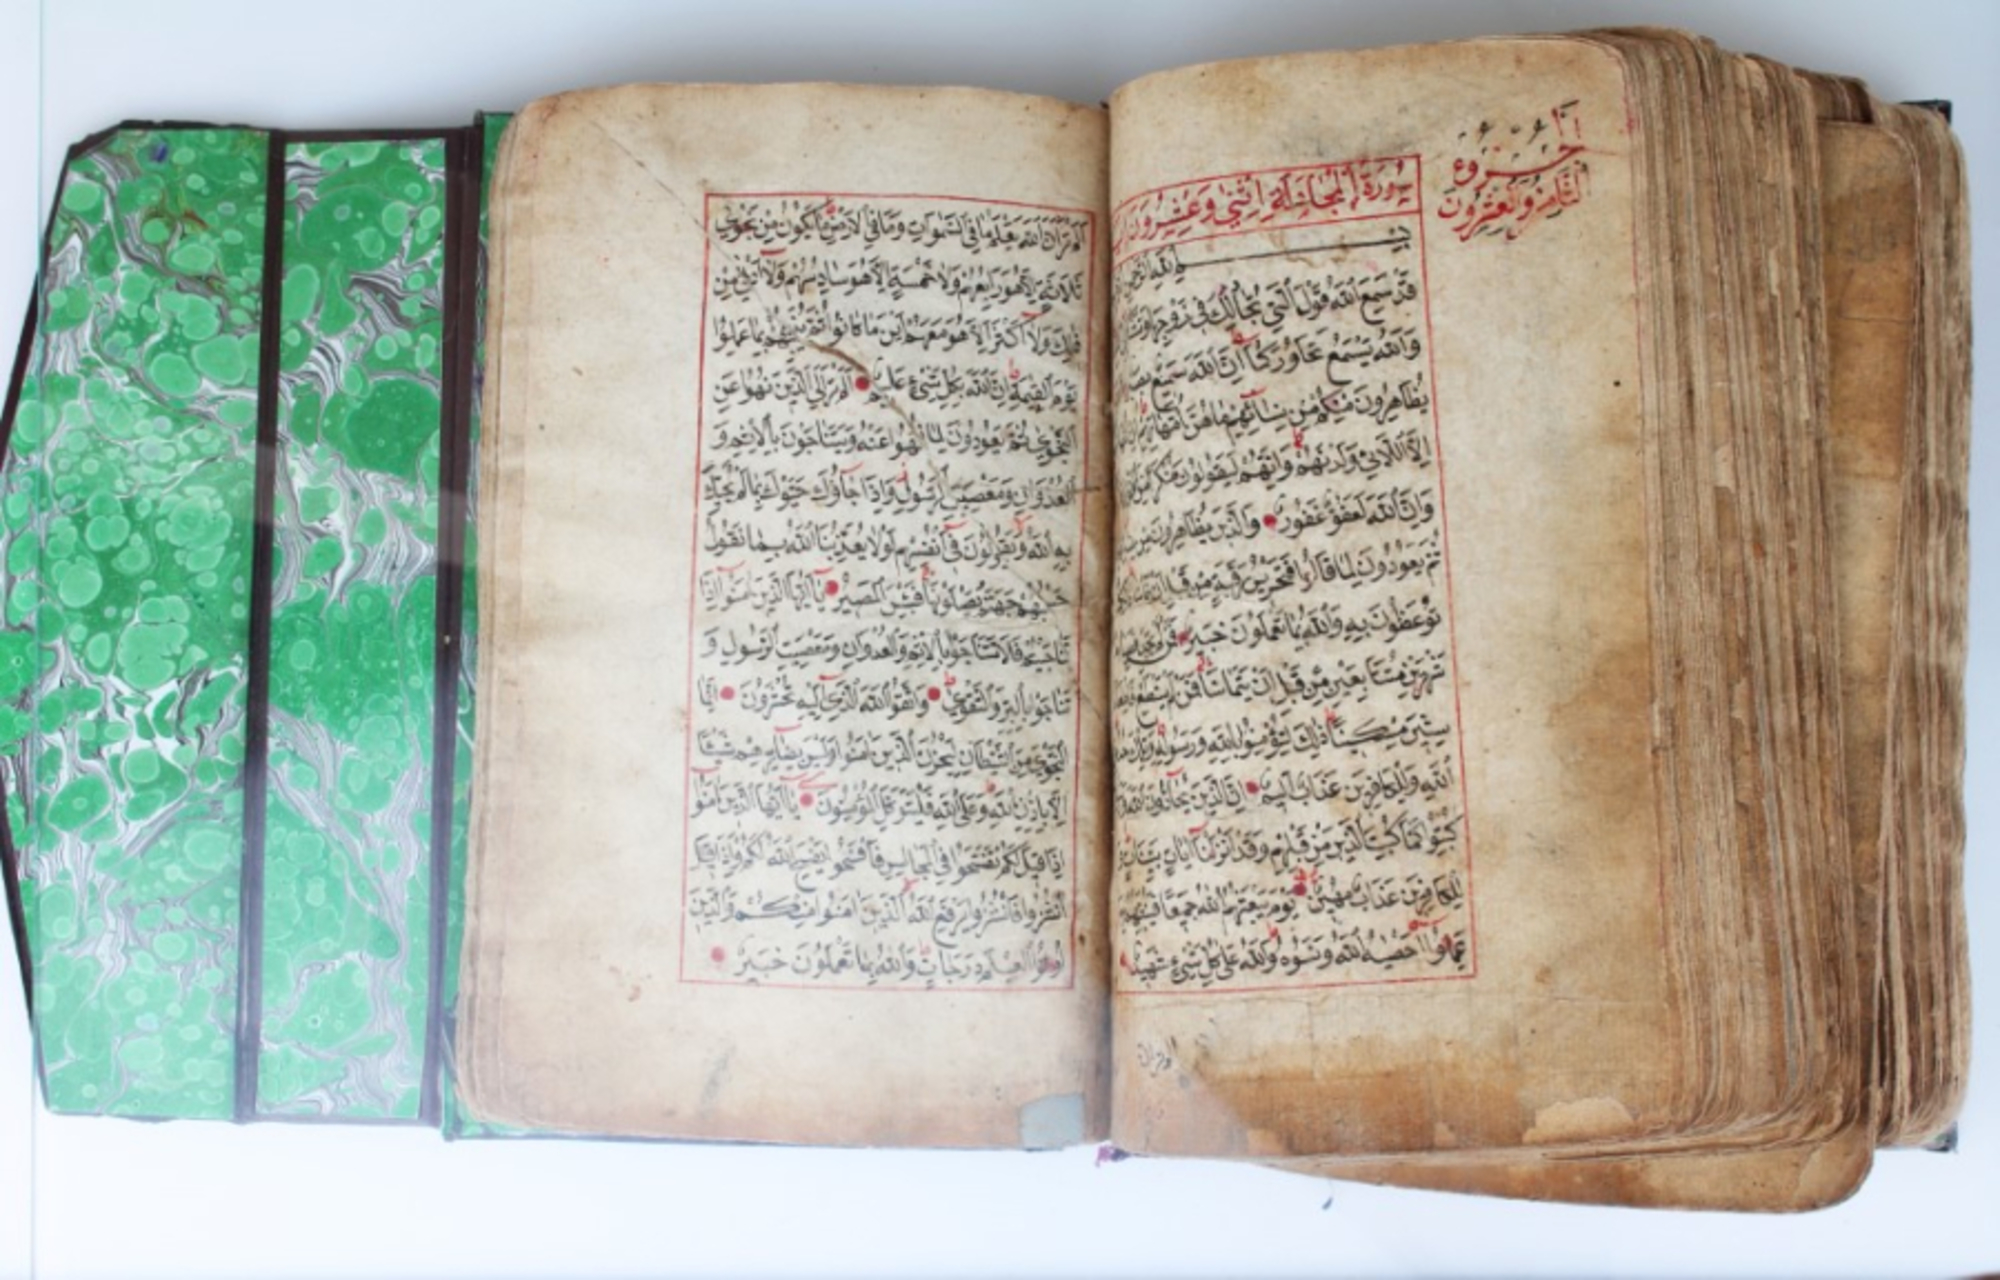 الجزوء
الثامن والعشرون
سورة المجادلة اثنى وعشرون
بسم الله الرحمن
قد سمع الله قول التي تجادلك في زوجها
والله يسمع تحاوركما ان الله سميع
يظاهرون منكم من نسائهم ما هن امهاتهم
الا اللائي ولدنهم وانهم ليقولون منكرا من
وان الله لعفو غفور والذين يظاهرون من
ثم يعودون لما قالوا فتحرير رقبة من قبل ان يتماسا
توعظون به والله بما تعملون خبير فمن لم يجد
شهرين متتابعين من قبل ان يتماسا فمن لم يستطع
ستين مسكينا ذلك لتؤمنوا بالله ورسوله وتلك
الله وللكافرين عذاب اليم ان الذين يحادون الله
كبتوا كما كبت الذين من قبلهم وقد انزلنا ايات بينات
للكافرين عذاب مهين يوم يبعثهم الله جميعا فينبئهم
عملوا احصيه الله ونسوه والله على كل شيء شهيد
الم تر ان الله يعلم ما في السموات وما في الارض ما يكون من نجوى
ثلاثة الا هو رابعهم ولا خمسة الا هو سادسهم ولا ادنى من
ذلك ولا اكثر الا هو معهم اين ما كانوا ثم ينبئهم بما عملوا
يوم القيمة ان الله بكل شيء عليم الم تر الى الذين نهوا عن
النجوى ثم يعودون لما نهوا عنه ويتناجون بالاثم و
العدوان ومعصيت الرسول واذا جاؤك حيوك بما لم يحيك
به الله ويقولون في انفسهم لولا يعذبنا الله بما نقول
حسبهم جهنم يصلونها فبئس المصير يا ايها الذين امنوا اذا
تناجيتم فلا تتناجوا بالاثم والعدوان ومعصيت الرسول و
تناجوا بالبر والتقوى واتقوا الله الذي اليه تحشرون انما
النجوى من الشيطان ليحزن الذين امنوا وليس بضارهم شيئا
الا باذن الله وعلى الله فليتوكل المؤمنون يا ايها الذين امنوا
اذا قيل لكم تفسحوا في المجالس فافسحوا يفسح الله لكم واذا قيل
انشزوا فانشزوا يرفع الله الذين امنوا منكم والذين
اوتوا العلم درجات والله بما تعملون خبير